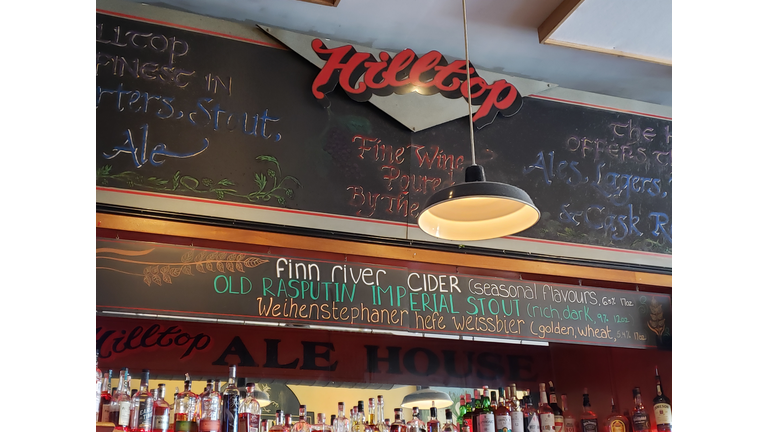 Hilltop
Hilltop
Finest in
Porters, Stout,
Ale
Fine Wine
Poure
By the
The H
Offers Th
Ales, Lagers,
& Cask R
finn river CIDER (seasonal flavours, 6.9% 17oz
OLD RASPUTIN IMPERIAL STOUT (rich, dark, 9% 12oz
Weihenstephaner hefe weissbier (golden, wheat, 5.4% 17oz
Hilltop
ALE HOUSE